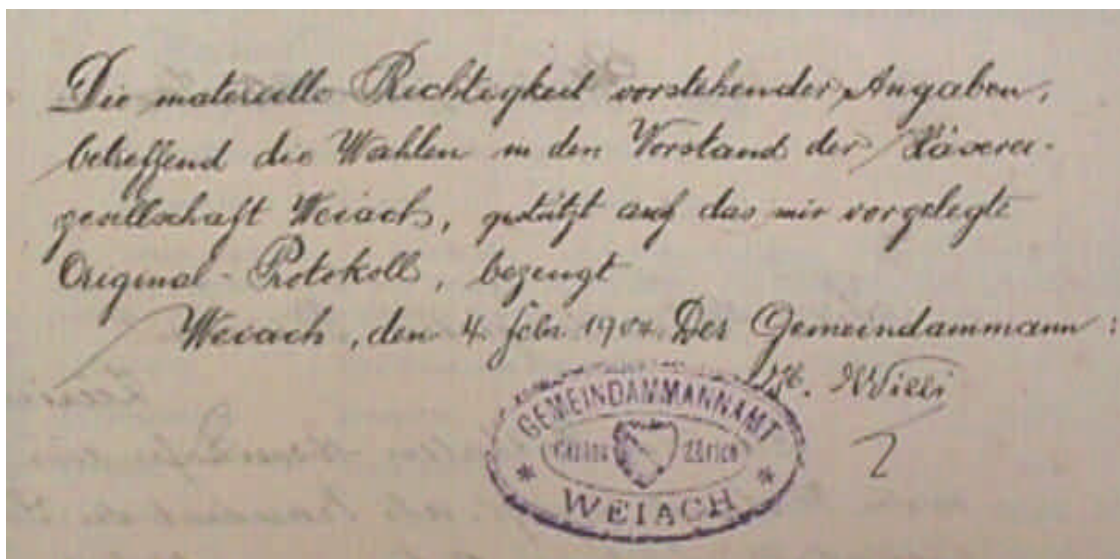 Die materielle Richtigkeit vorstehender Angaben,
betreffend die Wahlen in den Vorstand der Käserei-
gesellschaft Weiach, gestützt auf das mir vorgelegte
Original-Protokoll, bezeugt
Weiach, den 4. Febr. Der Gemeindammann:
Willi
GEMEINDAMMANNAMT
KANTON ZÜRICH
* WEIACH *